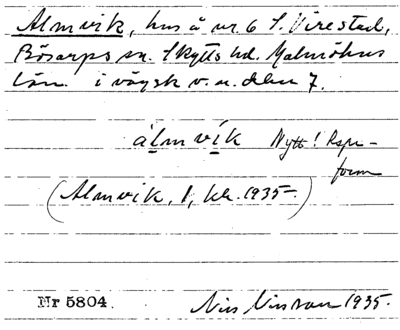 Almvik, hus å nr. 6 S. Virestad,
Bösarps sn. Skytts hd. Malmöhus
län. i väg sk v. n. den 7.
álmvík Nytt! Rspr-
form
(Almvik, 1, kr. 1935.)
Nr 5804. Nils Nilsson 1935.